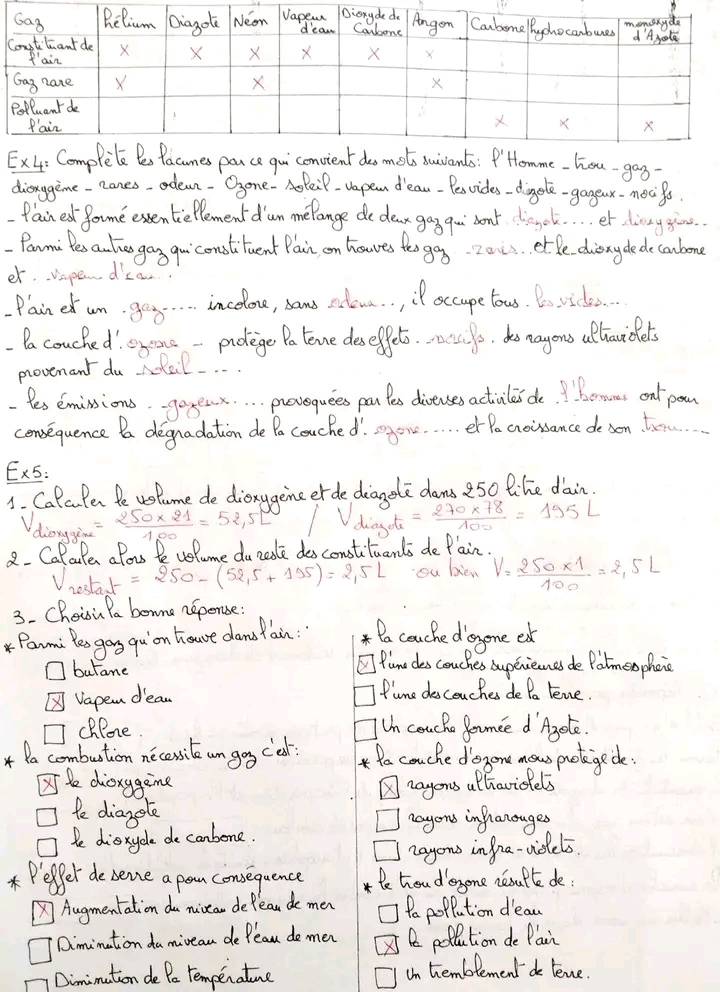 Gaz hélium Diazote Néon Vapeur d'eau Dioxyde de Carbone Argon Carbone hydrocarbures monoxyde d'Azote
Constituant de l'air X X X X X X
Gaz rare X X X
Polluant de l'air X X X
Ex4: Complète les lacunes par ce qui convient des mots suivants: l'Homme - trou - gaz -
dioxygène - rares - odeur - Ozone - soleil - vapeur d'eau - les vides - diazote - gazeux - nocifs.
- l'air est formé essentiellement d'un mélange de deux gaz qui sont diazote.... et dioxygène..
- Parmi les autres gaz qui constituent l'air, on trouves les gaz .rares.. et le dioxyde de carbone
et . vapeur d'eau . .
- l'air est un .gaz..... incolore, sans odeur.., il occupe tous .les vides...
- la couche d'.ozone - protège la terre des effets..nocifs. des rayons ultraviolets
provenant du .soleil - - . .
- les émissions ..gazeux..... provoquées par les diverses activités de .l'homme ont pour
conséquence la dégradation de la couche d'.ozone..... et la croissance de son trou....
Ex5:
1 - Calculer le volume de dioxygène et de diazote dans 250 litre d'air.
V dioxygène = 250 x 21 / 100 = 52,5 L / V diazote = 250 x 78 / 100 = 195 L
2 - Calculer alors le volume du reste des constituants de l'air.
V restant = 250 - (52,5 + 195) = 2,5 L ou bien V = 250 x 1 / 100 = 2,5 L
3 - Choisir la bonne réponse:
* Parmi les gaz qu'on trouve dans l'air:
butane
X Vapeur d'eau
chlore.
* la combustion nécessite un gaz c'est:
X le dioxygène
le diazote
le dioxyde de carbone.
* l'effet de serre a pour conséquence
X Augmentation du niveau de l'eau de mer
Diminution du niveau de l'eau de mer
Diminution de la température
* la couche d'ozone est
X l'une des couches supérieures de l'atmosphère
l'une des couches de la terre.
Un couche formée d'Azote.
* la couche d'ozone nous protège de:
X rayons ultraviolets
rayons infrarouges
rayons infra-violets.
* le trou d'ozone résulte de:
la pollution d'eau
X la pollution de l'air
Un tremblement de terre.